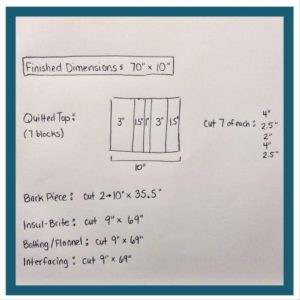 Finished Dimensions: 70" x 10"
Quilted Top:
(7 blocks)
3" 1.5" 1" 3" 1.5"
10"
Cut 7 of each:
4"
2.5"
2"
4"
2.5"
Back Piece: cut 2→10" x 35.5"
Insul-Brite: cut 9" x 69"
Batting/Flannel: cut 9" x 69"
Interfacing: cut 9" x 69"